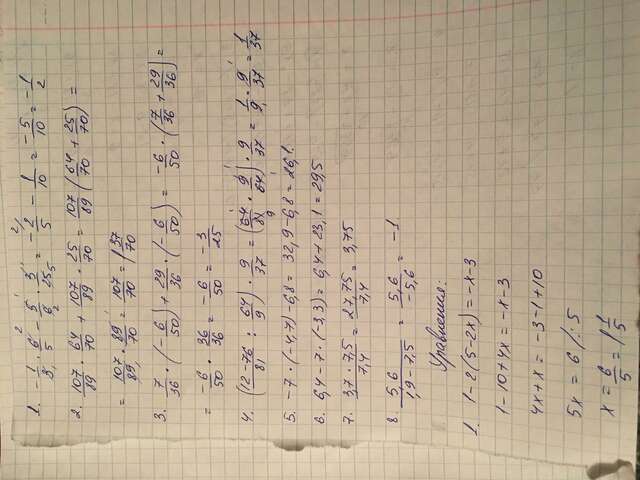 1. -1/3 · 6/5 - 5/6 · 3/25 = -2/5 - 1/10 = -5/10 = -1/2
2. 107/89 · 64/70 + 107/89 · 25/70 = 107/89 (64/70 + 25/70) =
= 107/89 · 89/70 = 107/70 = 1 37/70
3. 7/36 · (-6/50) + 29/36 · (-6/50) = -6/50 · (7/36 + 29/36) =
= -6/50 · 36/36 = -6/50 = -3/25
4. (12-76/81 : 64/9) · 9/37 = (64/81 · 9/64) · 9/37 = 1/9 · 9/37 = 1/37
5. -7 · (-4,7) - 6,8 = 32,9 - 6,8 = 26,1.
6. 6,4 - 7 · (-3,3) = 6,4 + 23,1 = 29,5
7. 3,7 · 7,5/7,4 = 27,75/7,4 = 3,75
8. 5,6/1,9-7,5 = 5,6/-5,6 = -1
Уравнения:
1. 1-2(5-2x) = -x-3
1-10+4x = -x-3
4x+x = -3-1+10
5x = 6 /:5
x = 6/5 = 1 1/5